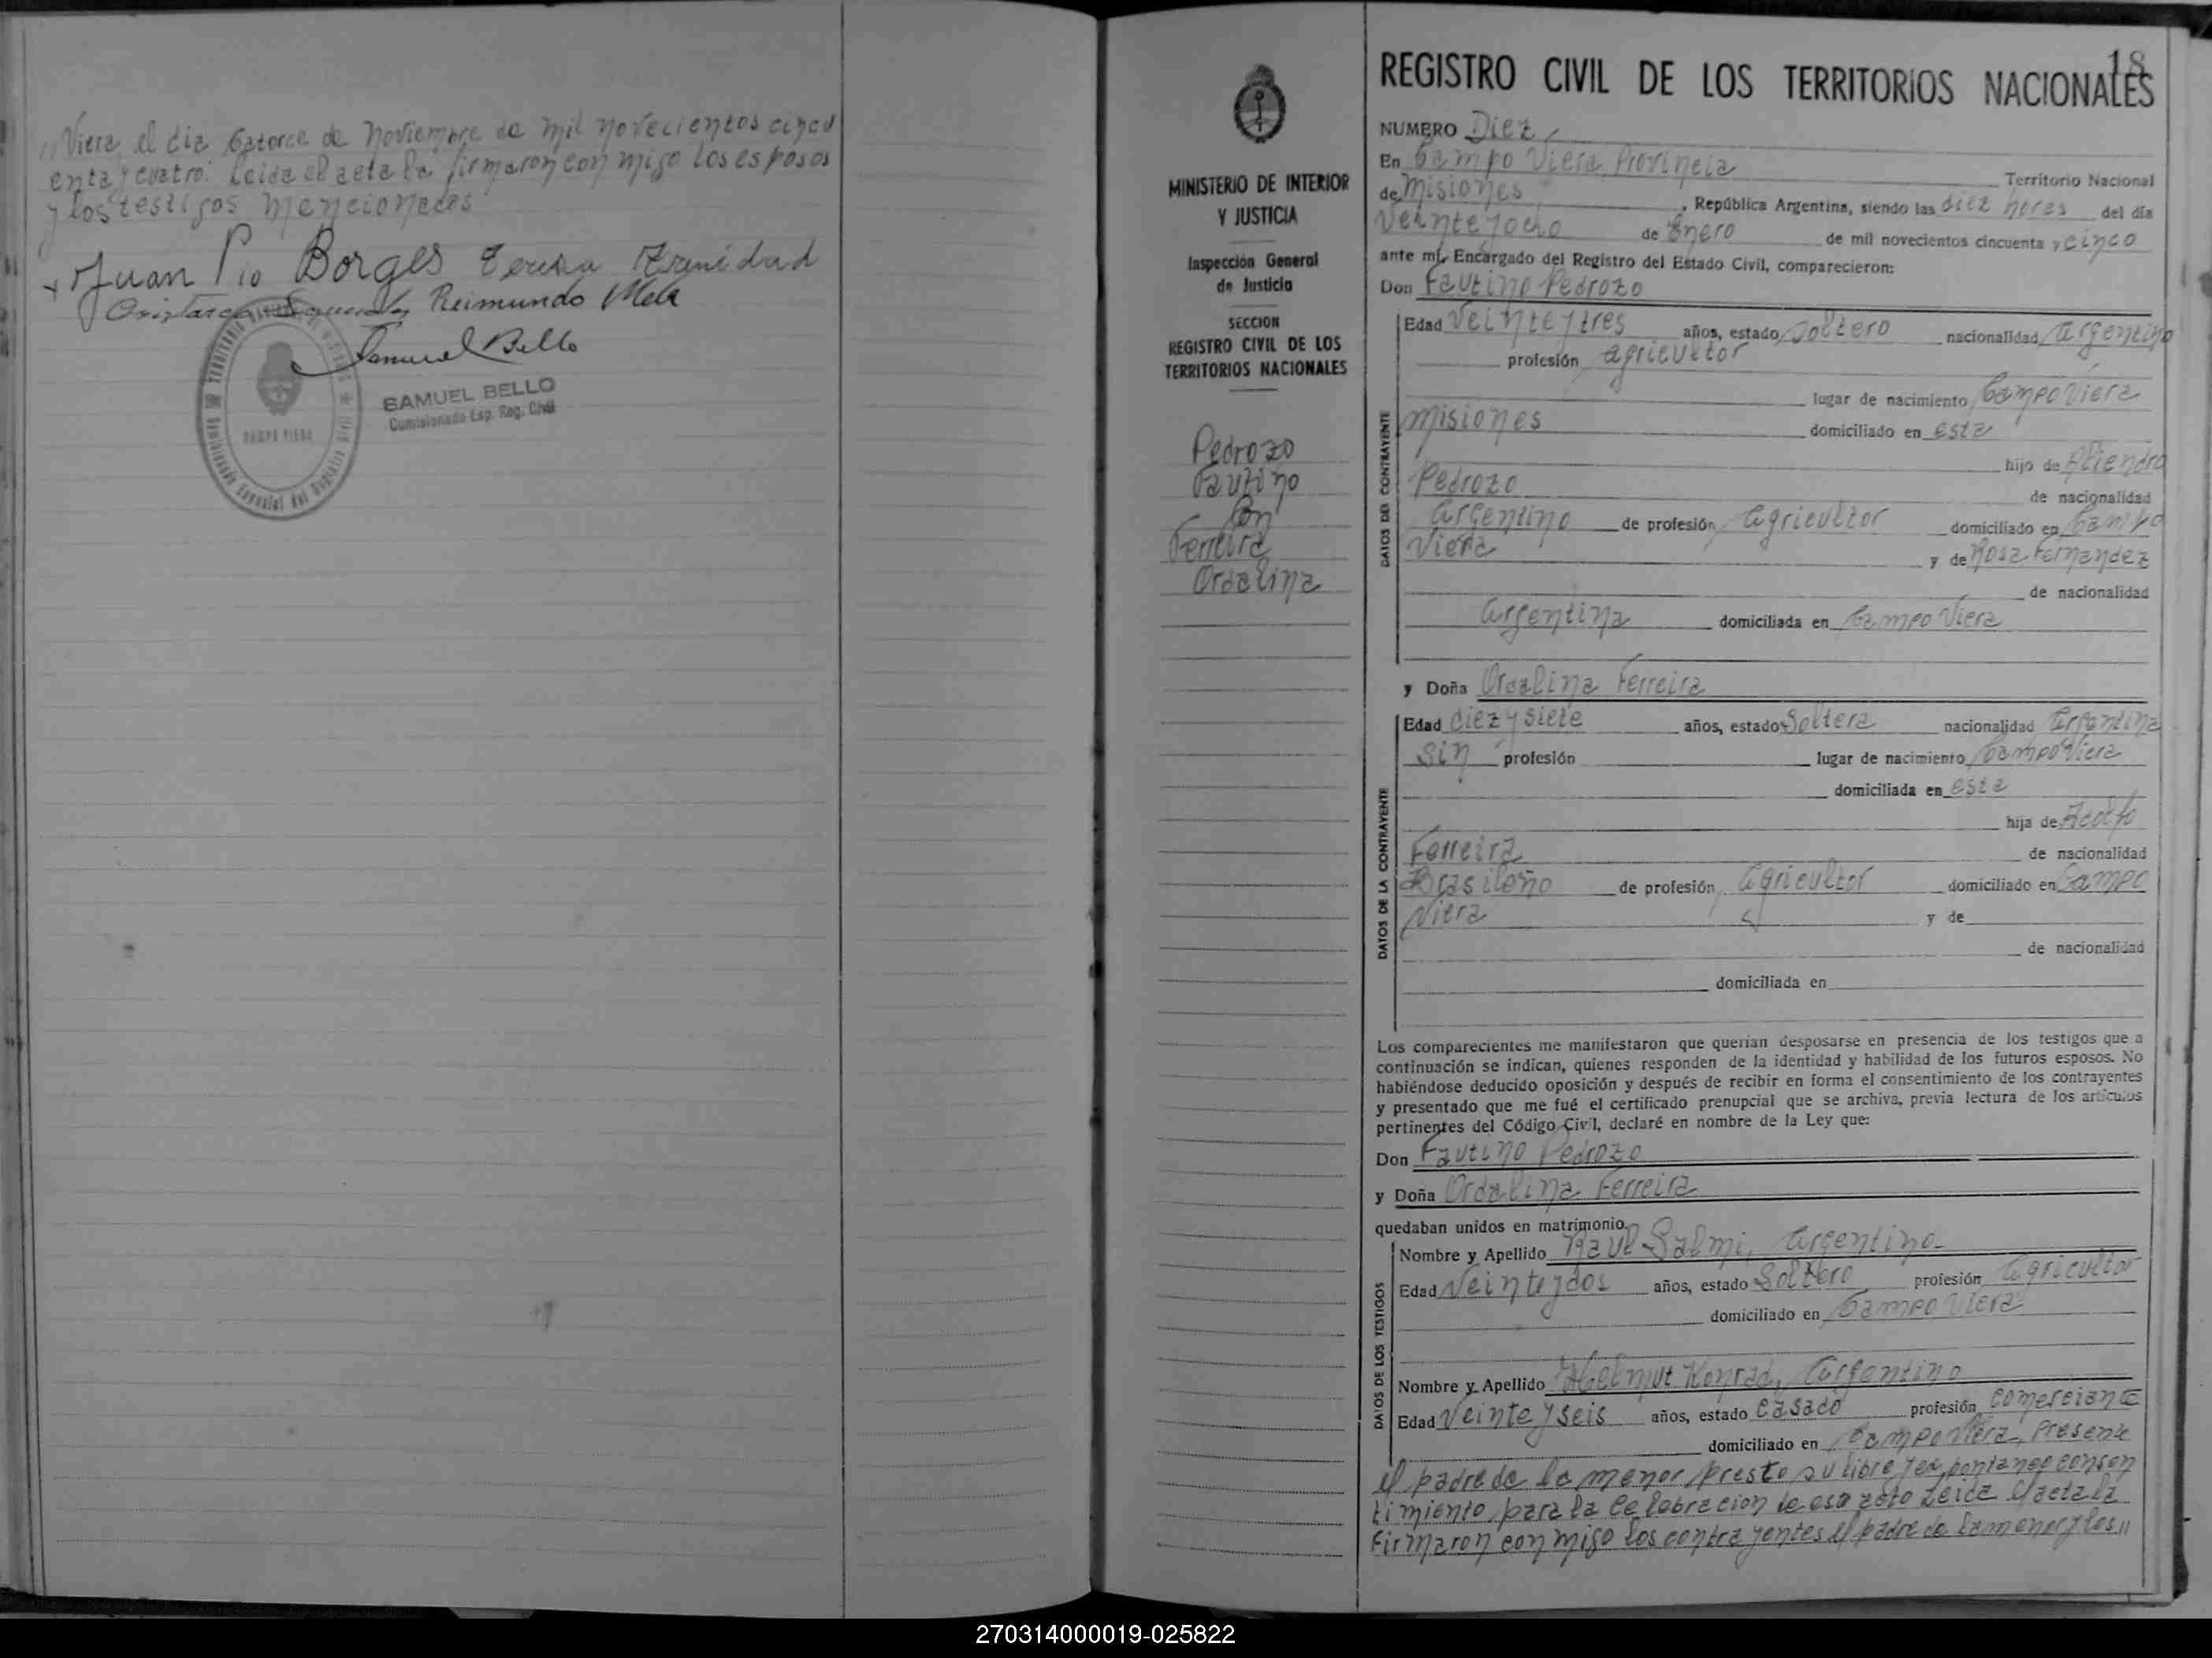 Viera, el dia Catorce de Noviembre de mil novecientos cincu
enta y cuatro. Leida el acta la firmaron con migo los esposos
y los testigos mencionados
Juan Pio Borges Teresa Trinidad
Reimundo Mela
Samuel Bello
SAMUEL BELLO
Comisionado Esp. Reg. Civil
CAMPO VIERA
18
REGISTRO CIVIL DE LOS TERRITORIOS NACIONALES
MINISTERIO DE INTERIOR
Y JUSTICIA
Inspección General
de Justicia
SECCION
REGISTRO CIVIL DE LOS
TERRITORIOS NACIONALES
Pedrozo
Fautino
Con
Ferreira
Ordalina
NUMERO Diez
En Campo Viera Provincia
Territorio Nacional
de Misiones, República Argentina, siendo las diez horas del día
Veinte y ocho de Enero de mil novecientos cincuenta y cinco
ante mí, Encargado del Registro del Estado Civil, comparecieron:
Don Fautino Pedrozo
DATOS DEL CONTRAYENTE
Edad Veinte y tres años, estado Soltero nacionalidad Argentino
profesión agricultor
lugar de nacimiento Campo Viera
Misiones domiciliado en esta
hijo de
Pedrozo de nacionalidad
Argentino de profesión Agricultor domiciliado en Campo
Viera y de Rosa Fernandez
de nacionalidad
Argentina domiciliada en Campo Viera
y Doña Ordalina Ferreira
DATOS DE LA CONTRAYENTE
Edad diez y siete años, estado Soltera nacionalidad Argentina
Sin profesión lugar de nacimiento Campo Viera
domiciliada en esta
hija de Adolfo
Ferreira de nacionalidad
Brasileño de profesión Agricultor domiciliado en Campo
Viera y de
de nacionalidad
domiciliada en
Los comparecientes me manifestaron que querían desposarse en presencia de los testigos que a
continuación se indican, quienes responden de la identidad y habilidad de los futuros esposos. No
habiéndose deducido oposición y después de recibir en forma el consentimiento de los contrayentes
y presentado que me fué el certificado prenupcial que se archiva, previa lectura de los artículos
pertinentes del Código Civil, declaré en nombre de la Ley que:
Don Fautino Pedrozo
y Doña Ordalina Ferreira
quedaban unidos en matrimonio.
DATOS DE LOS TESTIGOS
Nombre y Apellido Raul Salmi, Argentino
Edad Veinte y dos años, estado Soltero profesión Agricultor
domiciliado en Campo Viera
Nombre y Apellido Helmut Konrad, Argentino
Edad Veinte y seis años, estado Casado profesión Comerciante
domiciliado en Campo Viera, Presente
el padre de la menor presto su libre y espontaneo consen
timiento para la Celebracion de ese acto Leida el acta la
Firmaron con migo los contrayentes el padre de la menor y los
270314000019-025822